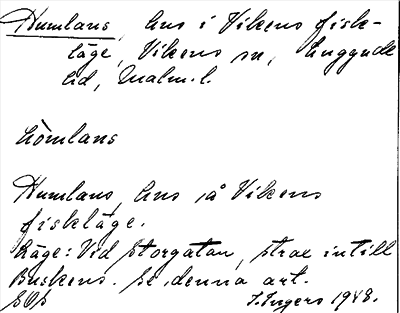 Humlans, hus i Vikens fisk-
läge, Vikens sn, Luggude
hd, Malm. l.
hòmlans
Humlans, hus på Vikens
fiskläge.
Läge: Vid Storgatan, strax intill
Buskens. Se denna art.
I. Ingers 1948.